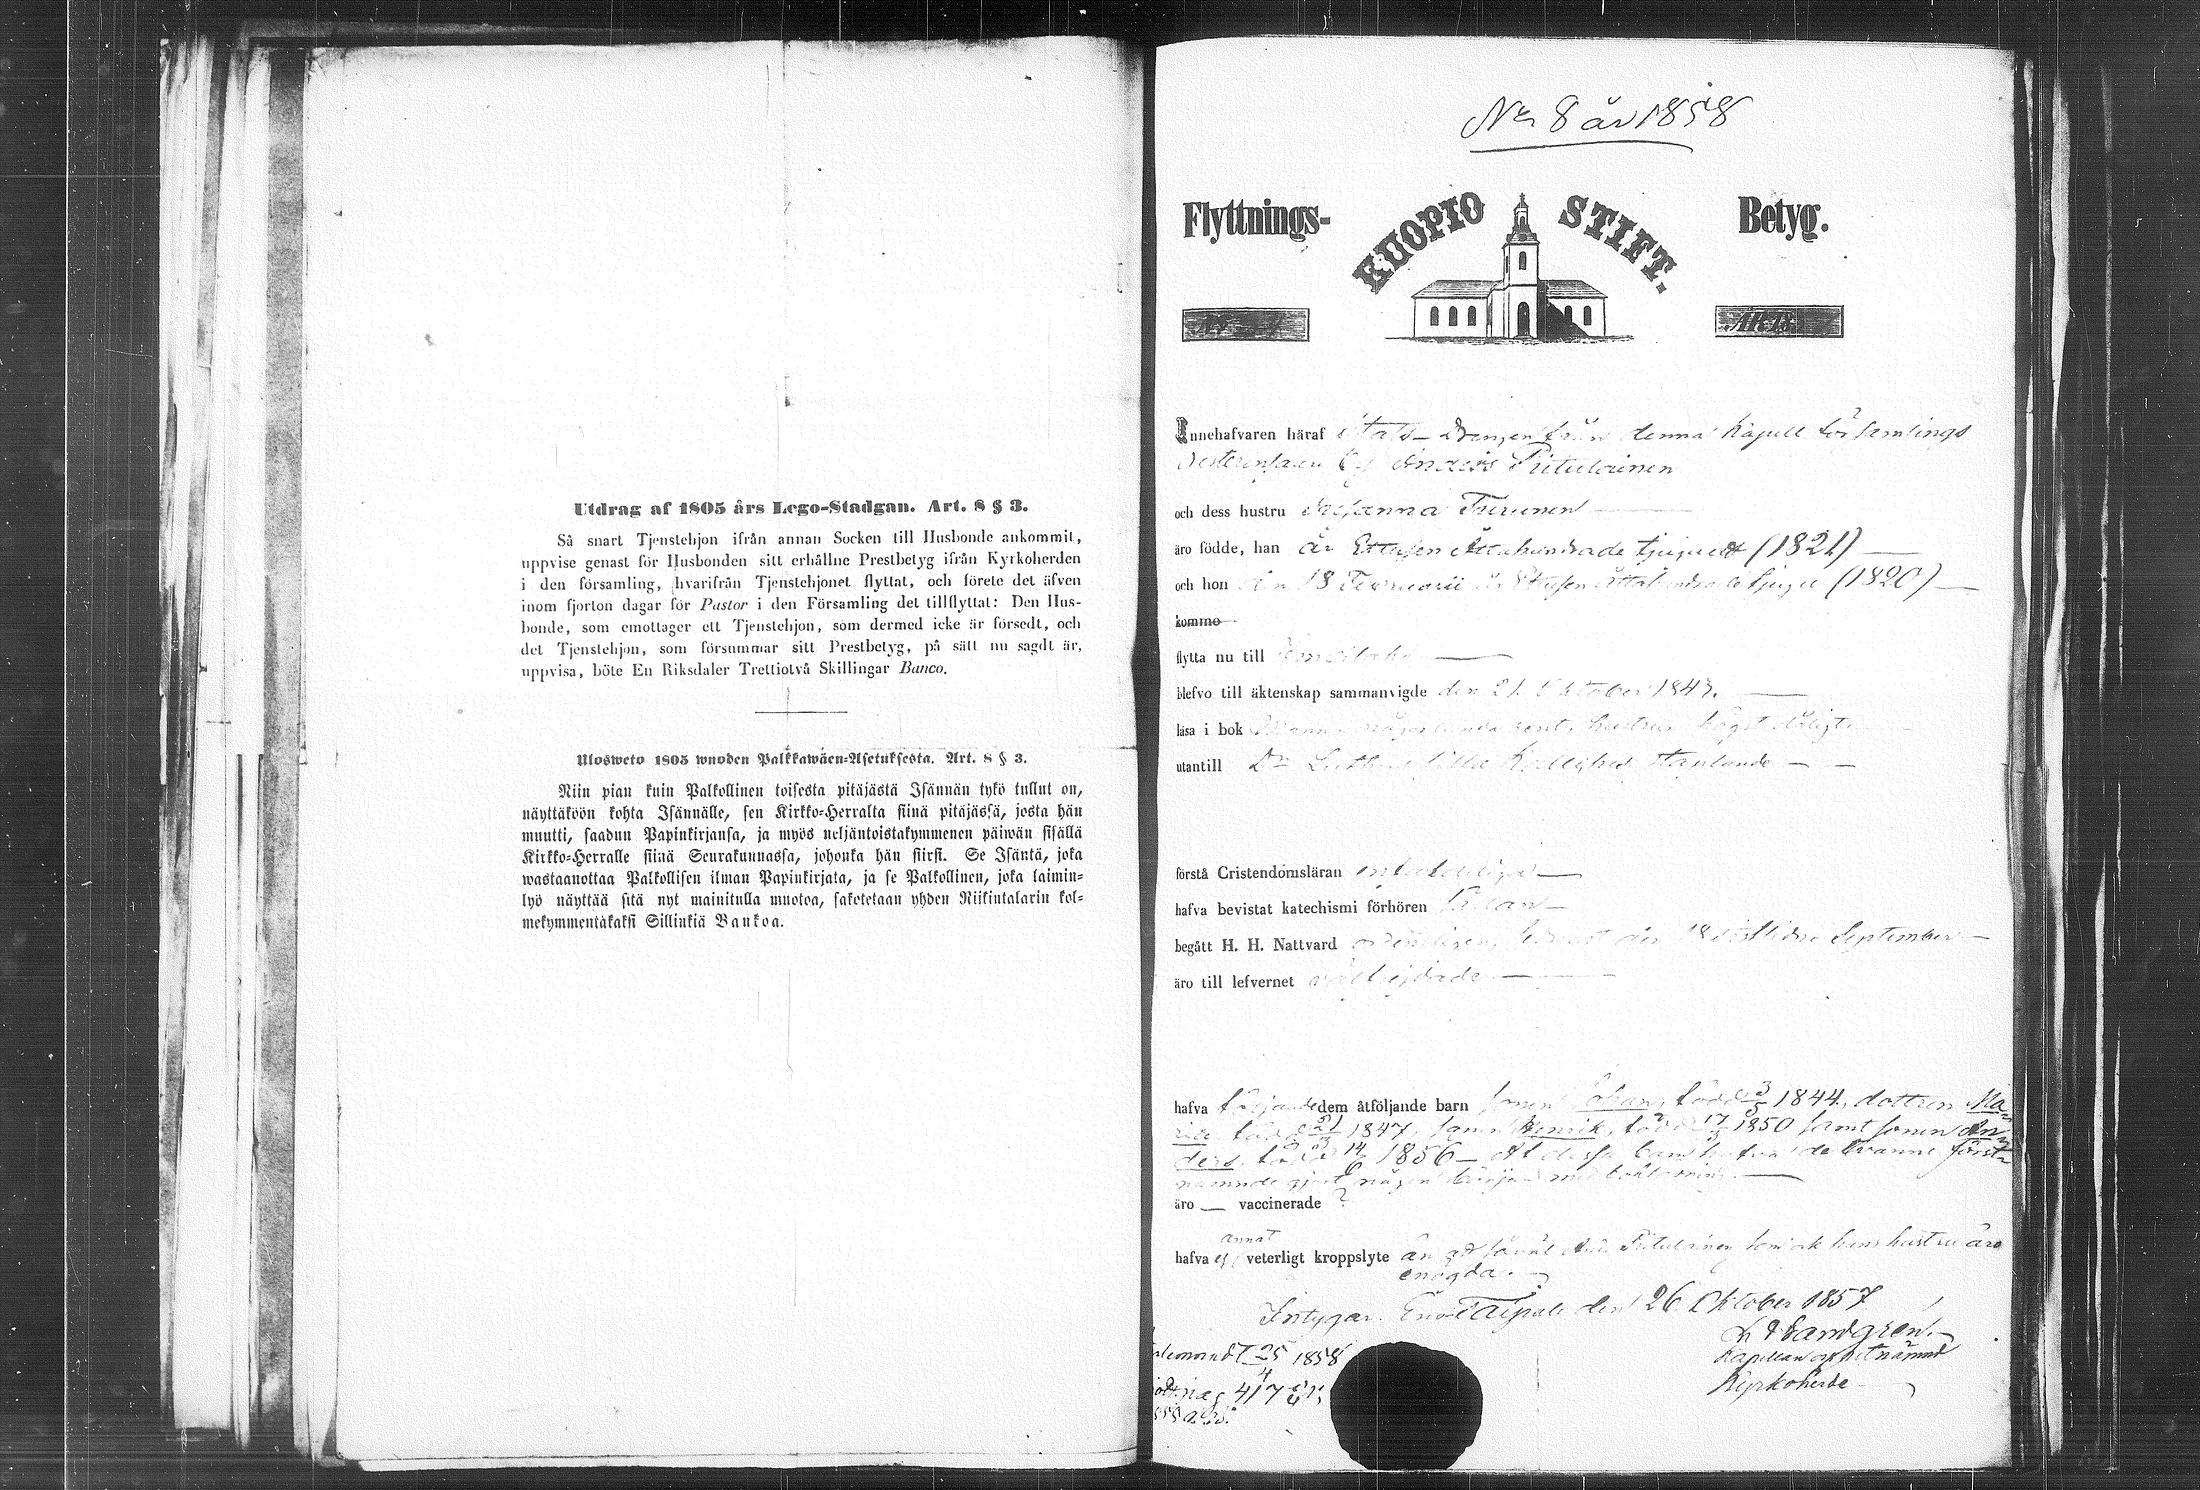 Utdrag af 1805 års Lego-Stadgan. Art. 8 § 3.
Så snart Tjenstehjon ifrån annan Socken till Husbonde ankommit,
uppvise genast för Husbonden sitt erhållne Prestbetyg ifrån Kyrkoherden
i den församling, hvarifrån Tjenstehjonet flyttat, och förete det äfven
inom fjorton dagar för Pastor i den Församling det tillflyttat: Den Hus-
bonde, som emottager ett Tjenstehjon, som dermed icke är försedt, och
det Tjenstehjon, som försummar sitt Prestbetyg, på sätt nu sagdt är,
uppvisa, böte En Riksdaler Trettiotvå Skillingar Banco.
Ulosweto 1805 wuoden Palkkawäen-Asetuksesta. Art. 8 § 3.
Niin pian kuin Palkollinen toisesta pitäjästä Isännän tykö tullut on,
näyttäköön kohta Isännälle, sen Kirkko-Herralta siinä pitäjässä, josta hän
muutti, saadun Papinkirjansa, ja myös neljäntoistakymmenen päiwän sisällä
Kirkko-Herralle siinä Seurakunnassa, johonka hän siirsi. Se Isäntä, joka
wastaanottaa Palkollisen ilman Papinkirjata, ja se Palkollinen, joka laimin-
lyö näyttää sitä nyt mainitulla muotoa, sakotetaan yhden Riikintalarin kol-
mekymmentäkaksi Sillinkiä Bankoa.
No 8 år 1858
Flyttnings- KUOPIO STIFT. Betyg.
Innehafvaren häraf Stats-Drengen från denna Kapell församlings
by Anders Piitulainen
och dess hustru Susanna Turunen
äro födde, han år Ettusen Åttahundrade tjuguett (1821)
och hon den 18 Februarii år Ettusen Åttahundrade tjugu (1820)
komme
flytta nu till
blefvo till äktenskap sammanvigde den 21. Oktober 1843.
läsa i bok Mannen någorlunda rent, hustrun högst dåligt
utantill Dr Luthers lilla Katekes staplande
förstå Cristendomsläran
hafva bevistat katechismi förhören
begått H. H. Nattvard ordentligen, senast den 18 sistlidne September
äro till lefvernet välfrejdade
hafva följande dem åtföljande barn sonen Johan, född 3/5 1844, dottren Ma-
ria, född 21 1847, sonen Henrik, född 17/3 1850 samt sonen An-
ders, född 14/6 1856 — Af dessa barn hafva de tvänne först-
nämnde gjort någon början med bokläsning.
äro — vaccinerade ?
annat
hafva ej veterligt kroppslyte än att såväl And. Piitulainen som ock hans hustru äro
enögda.
Intygar. Eno Taipale den 26 Oktober 1857
Sandgren.
Kapellan och utnämnd
Kyrkoherde
25/4 1858
417